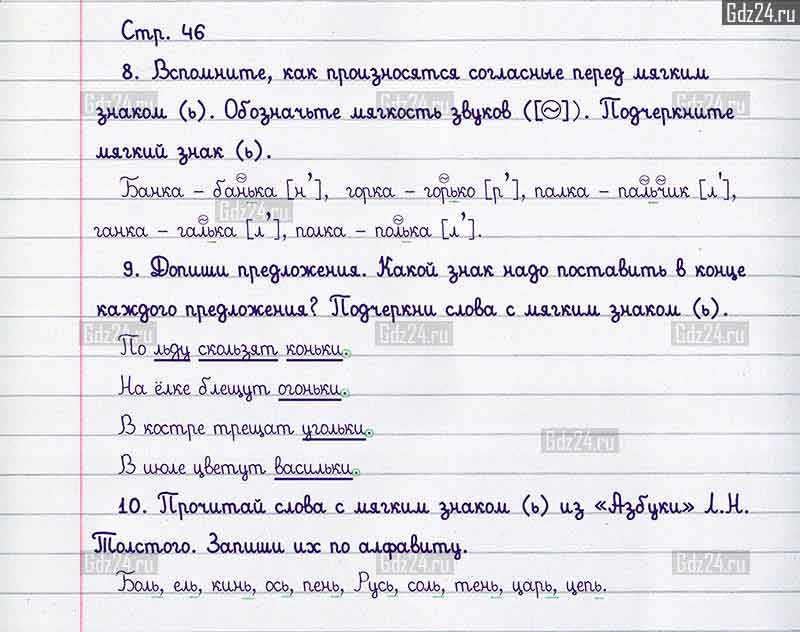 Gdz24.ru
Стр. 46
8. Вспомните, как произносятся согласные перед мягким
знаком (ь). Обозначьте мягкость звуков ([~]). Подчеркните
мягкий знак (ь).
Банка – банька [н'], горка – горько [р'], палка – пальчик [л'],
ганка – галька [л'], полка – полька [л'].
9. Допиши предложения. Какой знак надо поставить в конце
каждого предложения? Подчеркни слова с мягким знаком (ь).
По льду скользят коньки.
На ёлке блещут огоньки.
В костре трещат угольки.
В июле цветут васильки.
10. Прочитай слова с мягким знаком (ь) из «Азбуки» Л.Н.
Толстого. Запиши их по алфавиту.
Боль, ель, кинь, ось, пень, Русь, соль, тень, царь, цепь.